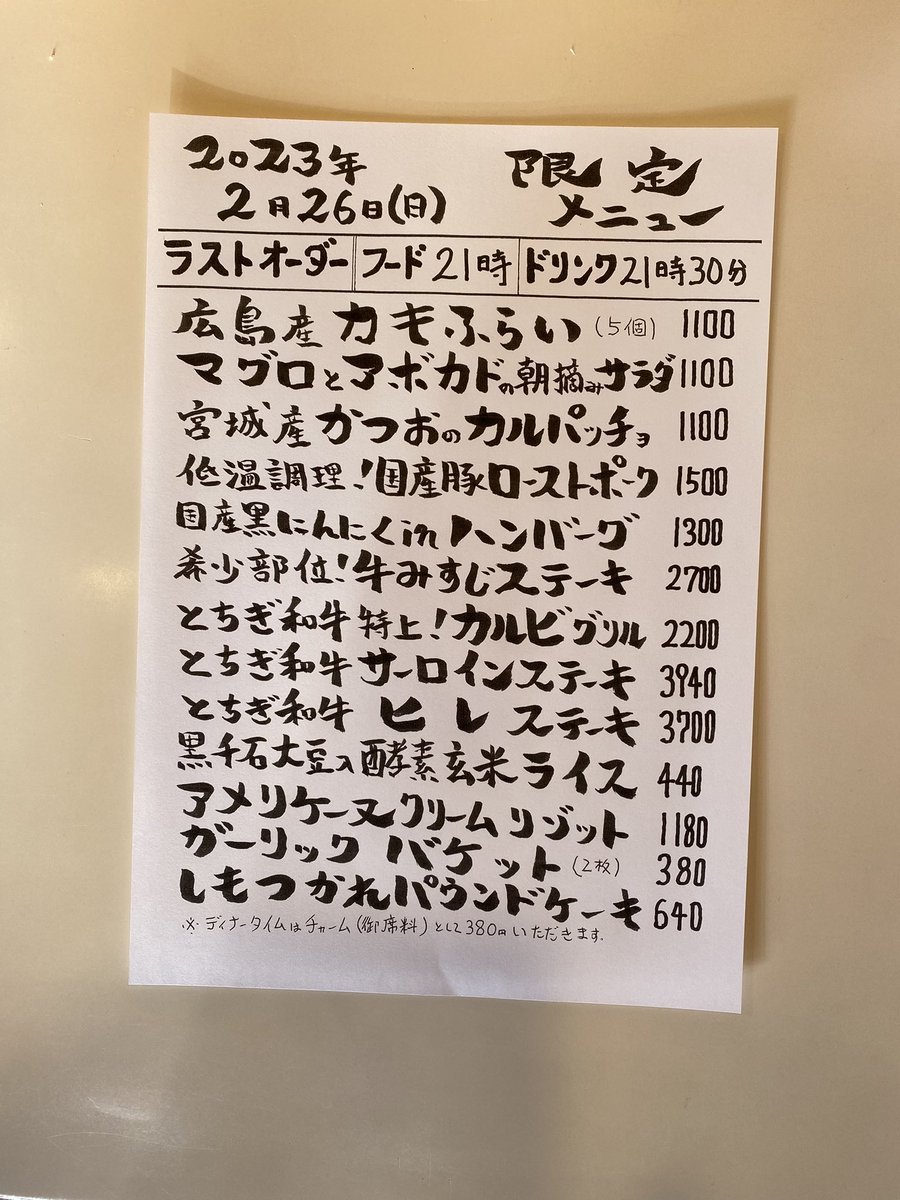 2023年
2月26日(日)
限定
メニュー
ラストオーダー フード21時 ドリンク21時30分
広島産カキふらい(5個) 1100
マグロとアボカドの朝摘みサラダ 1100
宮城産かつおのカルパッチョ 1100
低温調理!国産豚ローストポーク 1500
国産黒にんにくinハンバーグ 1300
希少部位!牛みすじステーキ 2700
とちぎ和牛特上!カルビグリル 2200
とちぎ和牛サーロインステーキ 3940
とちぎ和牛ヒレステーキ 3700
黒千石大豆入酵素玄米ライス 440
アメリケーヌクリームリゾット 1180
ガーリックバケット(2枚) 380
しもつかれパウンドケーキ 640
※ディナータイムはチャーム(御席料)として380円いただきます.